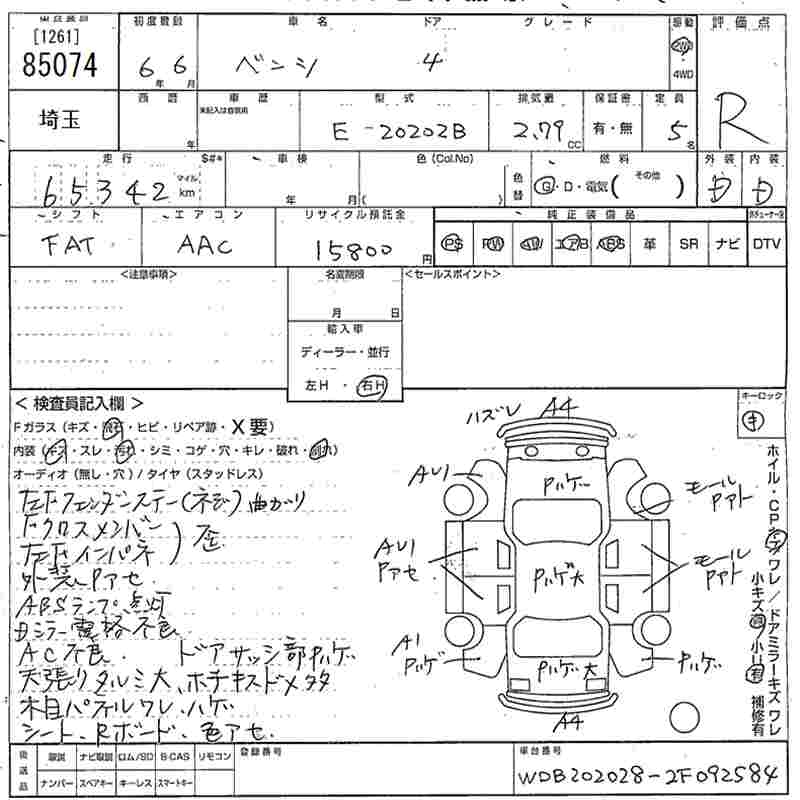 [1261]
85074
埼玉
初度登録
6年 6月
車名
ベンシ
ドア
4
グレード
駆動
2WD
4WD
評価点
R
西暦
年
車歴
未記入は自家用
型式
E-20202B
排気量
2.79 cc
保証書
有・無
定員
5名
走行
65342
$#*
マイル
km
車検
年 月
色(Col.No)
( )
色替
燃料
G・D・電気( その他 )
外装
D
内装
D
シフト
FAT
エアコン
AAC
リサイクル預託金
15800円
純正装備品
PS PW AW エアB ABS 革 SR ナビ DTV
<注意事項>
名変期限
月 日
輸入車
ディーラー・並行
左H・右H
<セールスポイント>
<検査員記入欄>
Fガラス(キズ・飛石・ヒビ・リペア跡・X要)
内装(キズ・スレ・汚れ・シミ・コゲ・穴・キレ・破れ・割れ)
オーディオ(無し・穴)/タイヤ(スタッドレス)
左Fフェンダーステー(ネジ)曲がり
Fクロスメンバー
左Fインパネ
)歪
外装Pアセ
ABSランプ点灯
Dミラー電格不良
AC不良. ドアサッシ部Pハゲ
天張りタルミ大、ホチキスドメタタ
木目パネルワレ、ハゲ
シート、Rボード、色アセ
キーロック
キ
ハズレ A4
Pハゲ
AU1
モール
Pアト
AU1
Pアセ
Pハゲ大
モール
Pアト
A1
Pハゲ
Pハゲ大
Pハゲ
A4
ホイル・CPキズワレ/ドアミラーキズワレ
小キズ有 小U有 補修有
後送品
取説 ナビ取説 ロム/SD B-CAS リモコン
ナンバー スペアキー キーレス スマートキー
登録番号
車台番号
WDB202028-2F092584